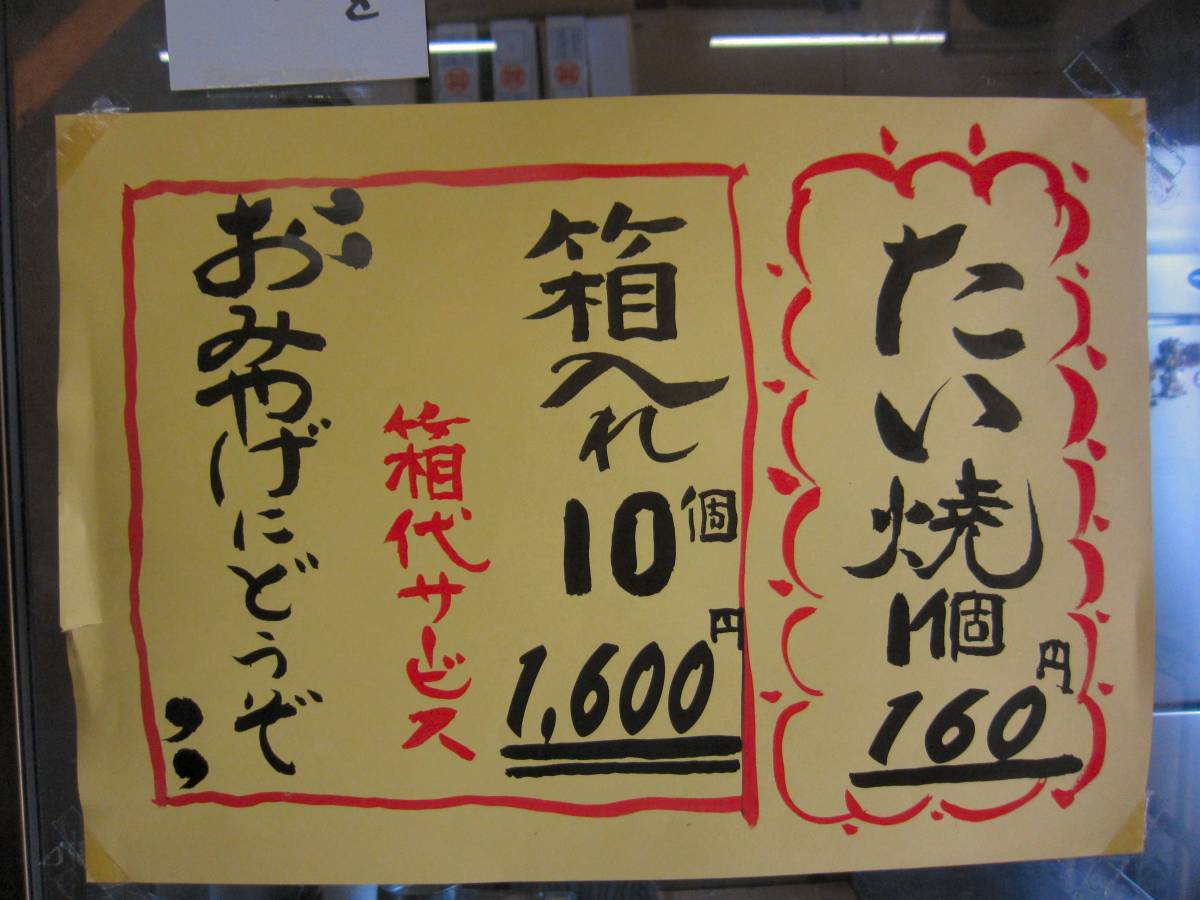 たい焼
1個
160円
箱入れ
10個
1,600円
箱代サービス
"おみやげにどうぞ"